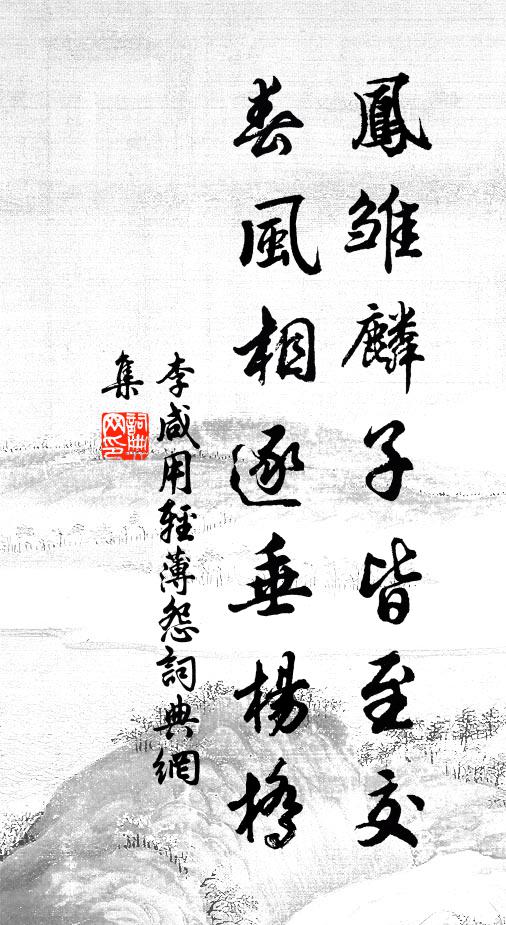 鳳雛麟子皆至交
春風相逐垂楊橋
李咸用輕薄怨詞典網
集
詞典
网印